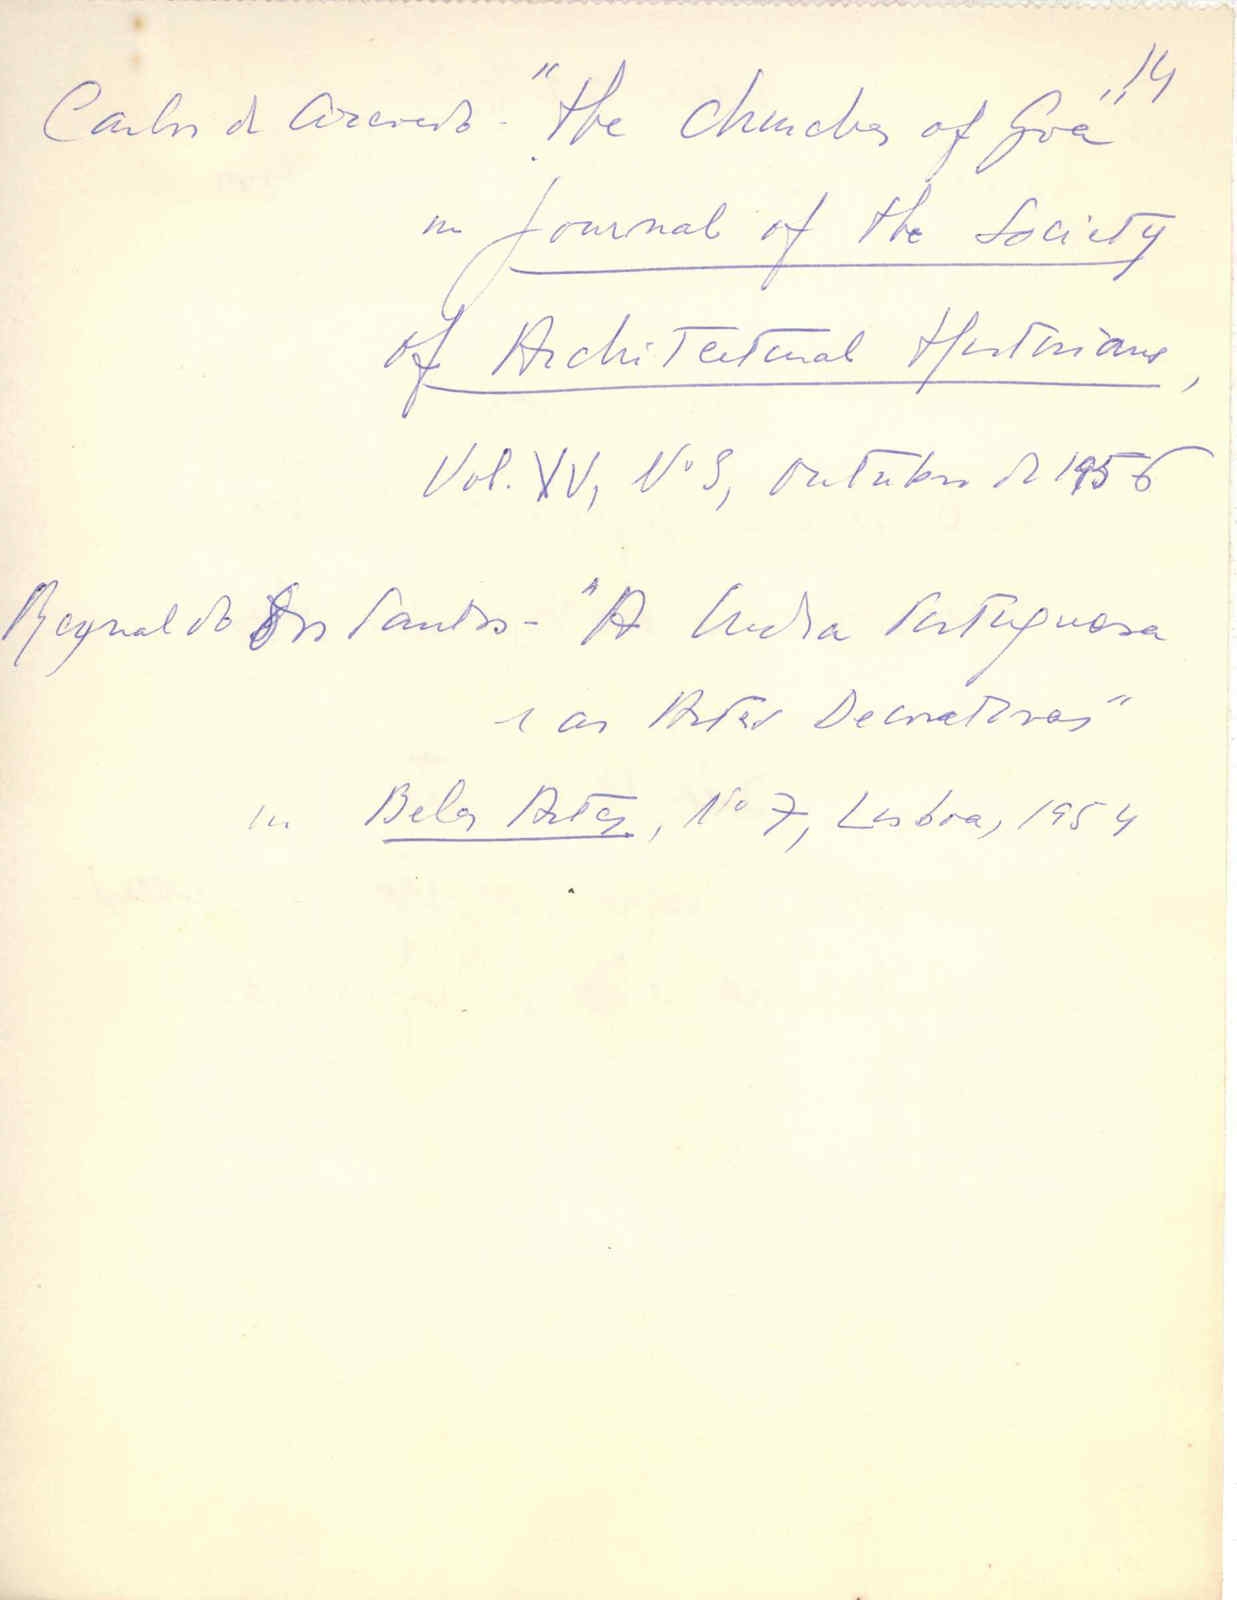 14
Carlos de Azevedo - "The Churches of Goa"
in Journal of the Society
of Architectural Historians,
Vol. XV, Nº 3, outubro de 1956
Reynaldo dos Santos - "A India Portuguesa
e as Artes Decorativas"
in Belas Artes, Nº 7, Lisboa, 1954